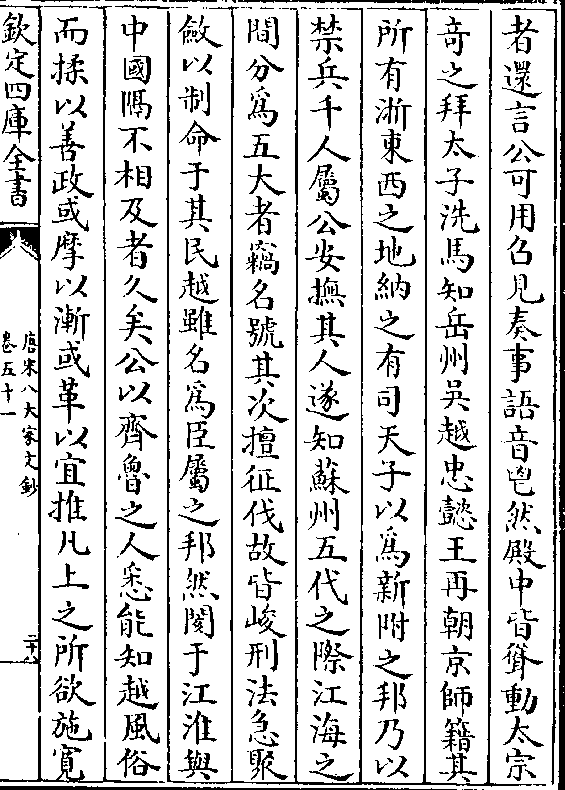 者還言公可用召見奏事語音鬯然殿中皆聳動太宗
竒之拜太子洗馬知岳州吳越忠懿王再朝京師籍其
所有浙東西之地納之有司天子以爲新附之邦乃以
禁兵千人屬公安撫其人遂知蘇州五代之際江海之
間分爲五大者竊名號其次擅征伐故皆峻刑法急聚
斂以制命于其民越雖名爲臣屬之邦然閡于江淮與
中國隔不相及者久矣公以齊魯之人悉能知越風俗
而揉以善政或摩以漸或革以宜推凡上之所欲施寛
欽定四庫全書
唐宋八大家文鈔
卷五十一